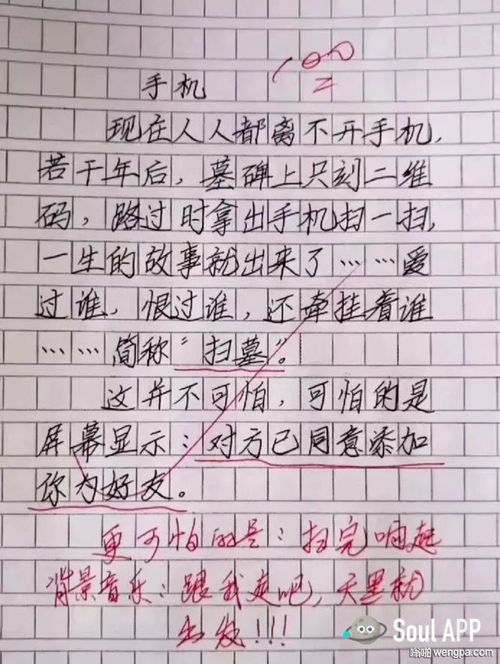 100
手机
现在人人都离不开手机,
若干年后，墓碑上只刻二维
码，路过时拿出手机扫一扫,
一生的故事就出来了……爱
过谁，恨过谁，还牵挂着谁
……简称“扫墓”。
这并不可怕，可怕的是
屏幕显示：对方已同意添加
你为好友。
更可怕的是：扫完响起
背景音乐：跟我走吧，天黑就
出发!!!
Soul APP
嗡啪wengpa.com